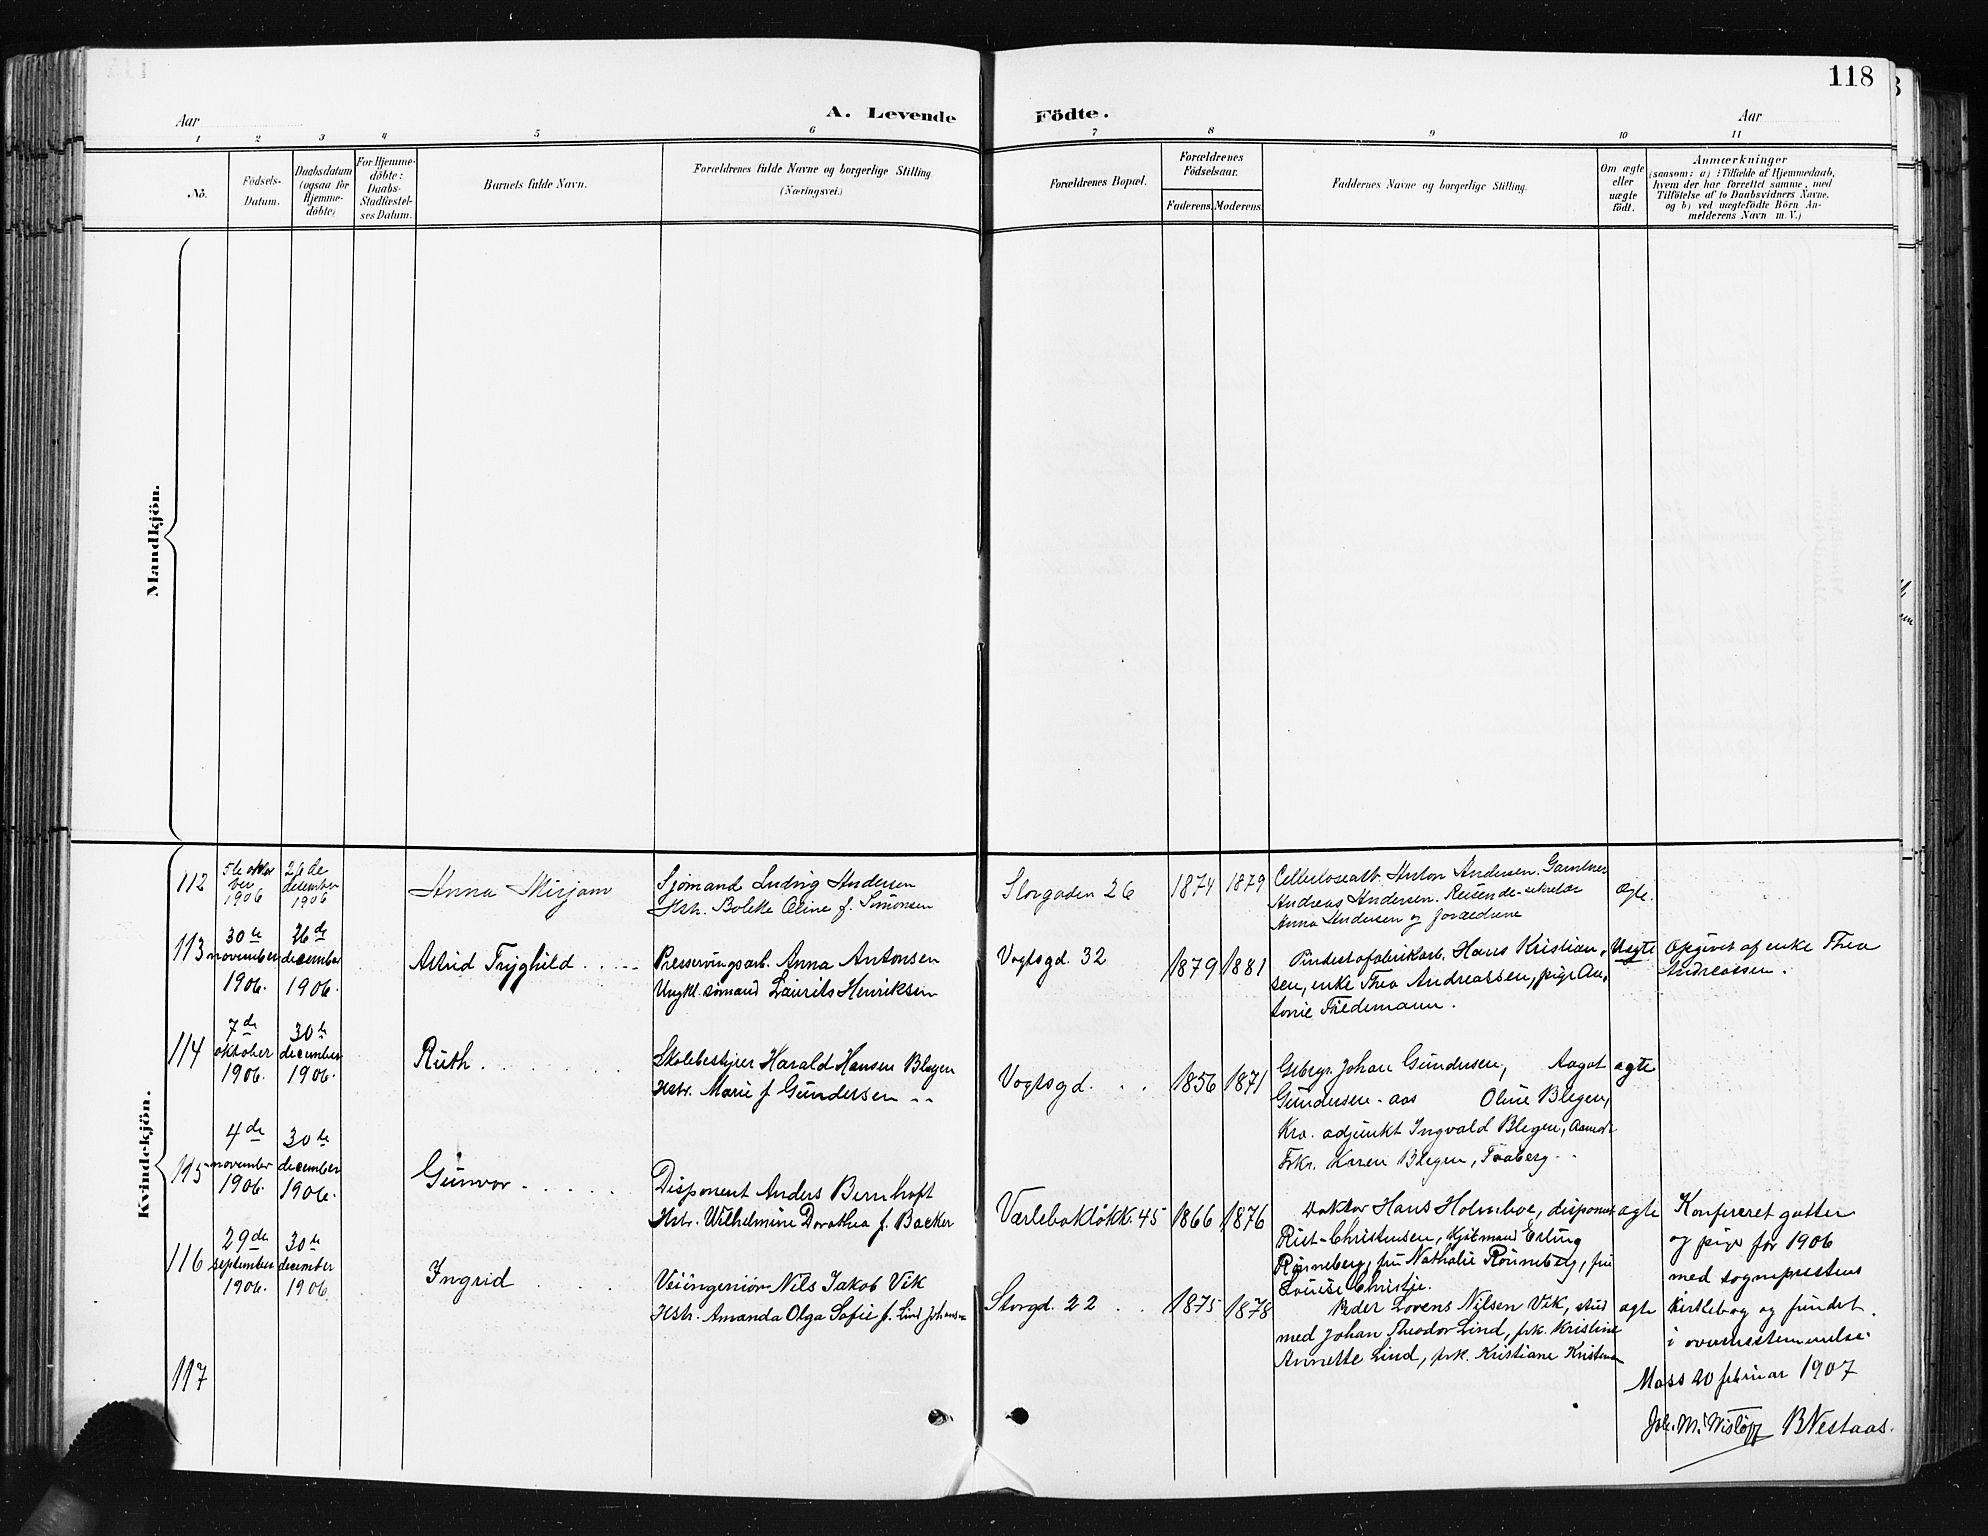 118
A. Levende Födte.
Aar
Aar
1 2 3 4 5 6 7 8 9 10 11
No.
Födsels-
Datum.
Daabsdatum
(ogsaa for
Hjemme-
döbte)
For Hjemme-
döbte:
Daabs-
Stadfæstel-
ses Datum.
Barnets fulde Navn.
Forældrenes fulde Navne og borgerlige Stilling
(Næringsvei.)
Forældrenes Bopæl.
Forældrenes
Födselsaar.
Faderens. Moderens.
Faddernes Navne og borgerlige Stilling.
Om ægte
eller
uægte
födt.
Anmærkninger
(saasom: a) i Tilfælde af Hjemmedaab,
hvem der har forrettet samme, med
Tilföielse af to Daabsvidners Navne,
og b) ved uægtefödte Börn An-
melderens Navn m. V.)
Mandkjön.
Kvindekjön.
112
5te okto
ber
1906
26de
december
1906
Anna Mirjam
Sjømand Ludvig Andersen
Hstr. Bolette Oline f. Simonsen
Storgaden 26
1874 1879
Cellulosearb. Anton Andersen. Gartner
Andreas Andersen. Reisende-sekretær
Anna Andersen og forældrene
ægte.
113
30te
november
1906.
26de
december
1906.
Astrid Tryghild
Preserveringsarb. Anna Antonsen
Ungkl. sømand Laurits Henriksen
Vogtsgd. 32
1879 1881
Hans Kristian-
sen, enke Thea Andreassen, pige An-
tonie Tiedemann.
Uægte
Opgivet af enke Thea
Andreassen.
114
7de
oktober
1906.
30te
december
1906.
Ruth
Skolebestyrer Harald Hansen Blegen
Hstr. Marie f. Gundersen
Vogtsgd.
1856 1871
Johan Gundersen, Aagot
Gundersen - aas Oline Blegen,
Kra. adjunkt Ingvald Blegen,
Frk. Karen Blegen, Faaberg
ægte
115
4de
november
1906.
30te
december
1906.
Gunvor
Disponent Anders Bernhoft
Hstr. Wilhelmine Dorothea f. Backer
Værlebakløkk. 45
1866 1876
Doktor Hans Holmboe, disponent
Riet-Christensen, kjøbmand Erling
Rønneberg, fru Nathalie Rønneberg, fru
Louise Christje.
ægte
Konfereret gutter
og piger for 1906
med sogneprestens
kirkebog og fundet
i overensstemmelse.
Moss 20 februar 1907
Joh. M. Wisløff BNestaas.
116
29de
september
1906.
30te
december
1906
Ingrid
Veiingeniør Nils Jakob Vik
Hstr. Amanda Olga Sofie f. Lind
Storgd. 22
1875 1878
Peder Lorens Nilsen Vik, stud
med Johan Theodor Lind, frk. Kristine
Annette Lind, frk. Kristiane
ægte
117